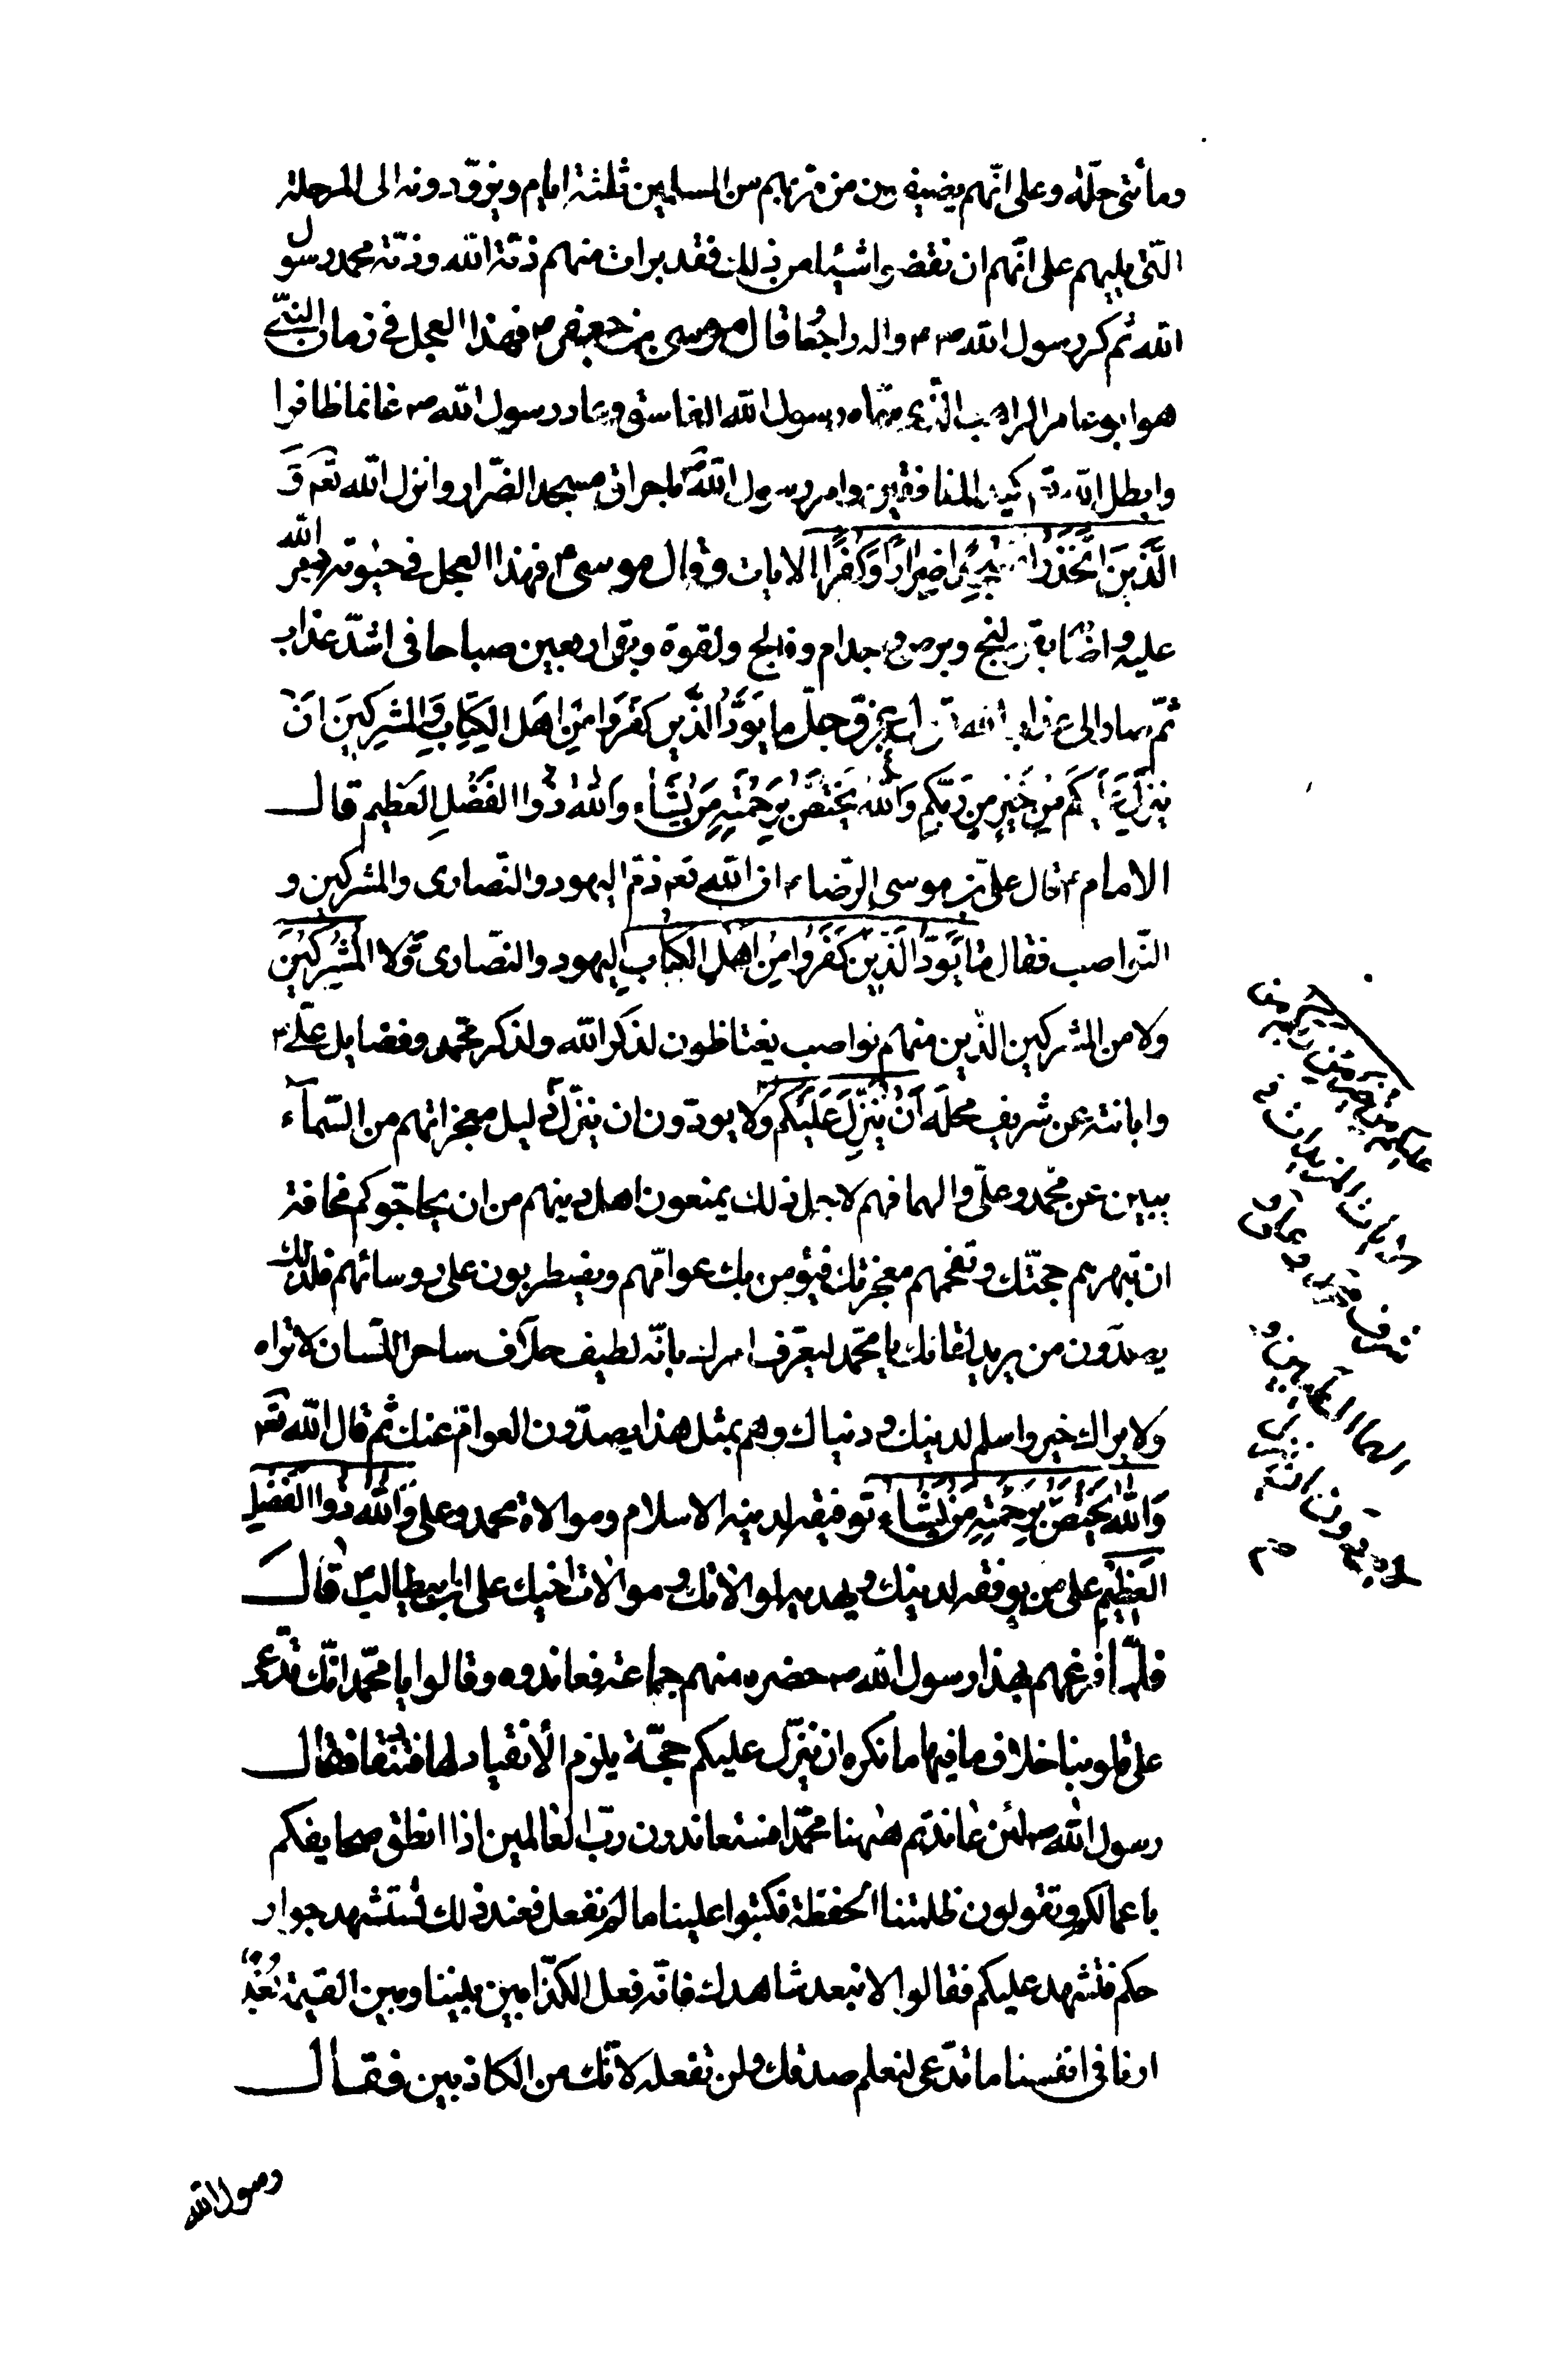 ومأتى حلّة وعلى انّهم يضيفون من مرّ بهم من المسلمين ثلثة ايام ويزوّدونه الى المرحلة
الّتى يليهم على انّهم ان نقضوا شيئا من ذلك فقد برات منهم ذمّة الله وذمّة محمد رسول
الله ثم كرّ رسول الله ص واله راجعا قال موسى بن جعفر ع فهذا العجل فى زمان النبىّ
هو ابو عامر الراهب الّذى سمّاه رسول الله الفاسق وعاد رسول الله ص غانما ظافرا
وابطل الله تع كيد المنافقين وامر رسول الله ص باحراق مسجد الضّرار وانزل الله تعم وَ
الَّذينَ اتَّخَذُوا مَسْجِداً ضِراراً وَكُفْراً الايات وقال موسى ع فهذا العجل فى حيوته دمّر الله
عليه واصابه بقولنج وبرص وجدام وفالج ولقوة وبقى اربعين صباحا فى اشدّ عذاب
ثمّ صار الى عذاب الله تع قوله عزّ وجلّ ما يَوَدُّ الَّذينَ كَفَرُوا مِنْ اَهْلِ الْكِتابِ وَلا الْمُشْرِكينَ اَنْ
يُنَزَّلَ عَلَيْكُمْ مِنْ خَيْرٍ مِنْ رَبِّكُمْ وَاللهُ يَخْتَصُّ بِرَحْمَتِهِ مَنْ يَشاءُ وَاللهُ ذُوا الْفَضْلِ الْعَظيمِ قال
الامام ع قال على بن موسى الرّضا ع ان الله تعم ذمّ اليهود والنّصارى والمشركين و
النّواصب فقال ما يَوَدُّ الَّذينَ كَفَرُوا مِنْ اَهْلِ الْكِتابِ اليهود والنّصارى وَلا الْمُشْرِكينَ
ولا من المشركين الّذين منهم نواصب يغتاظون لذكر الله ولذكر محمّد وفضايل علىّ ع
وابانته عن شريف محلّه اَنْ يُنَزَّلَ عَلَيْكُمْ ولا يودّون ان ينزّل دليل معجزاتهم من السّمآء
يبين عن محمّد وعلىّ والهما فهم لاجل ذلك يمنعون اهل دينهم من ان يحاجّوكم مخافة
ان تبهرهم حجّتك وتفحمهم معجزتك فيؤمن بك عوامّهم ويضطربون على روسائهم فلذلك
يصدّون من يريد لقائك يا محمّد ليعرف امرك بانّه لطيف حلّاف ساحر اللّسان لا تراه
ولا يراك خير واسلم لدينك ودنياك وهم بمثل هذا يصدّون العوامّ عنك ثم قال الله تعم
وَاللهُ يَخْتَصُّ بِرَحْمَتِهِ مَنْ يَشاءُ توفيقه لدينه الاسلام وموالاة محمد وعلى وَاللهُ ذُوا الْفَضْلِ
الْعَظيمِ على من يوفقه لدينك ويهديه لموالاتك وموالات اخيك على ابن ابيطالب ع قال
فلمّا قرعهم بهذا رسول الله ص حضره منهم جماعة فعاندوه وقالوا يا محمّد انّك تدّعى
على قلوبنا خلاف ما فيها ما نكره ان ينزّل عليكم حجّة يلزم الانقياد لها فننقاد فقال
رسول الله ص لئن عاندتم ههنا محمّدا فستعاندون ربّ العالمين اذا انطق صحايفكم
باعمالكم وتقولون ظلمتنا الحفظة فكتبوا علينا ما لم نفعل فعند ذلك يستشهد جوار
حكم فتشهد عليكم فقالوا لا تبعد شاهدك فانّه فعل الكذّابين بيننا وبين القيمة بُعد
ارنا فى انفسنا ما تدّعى لنعلم صدقك ولن تفعله لانّك من الكاذبين فقال
رسول الله